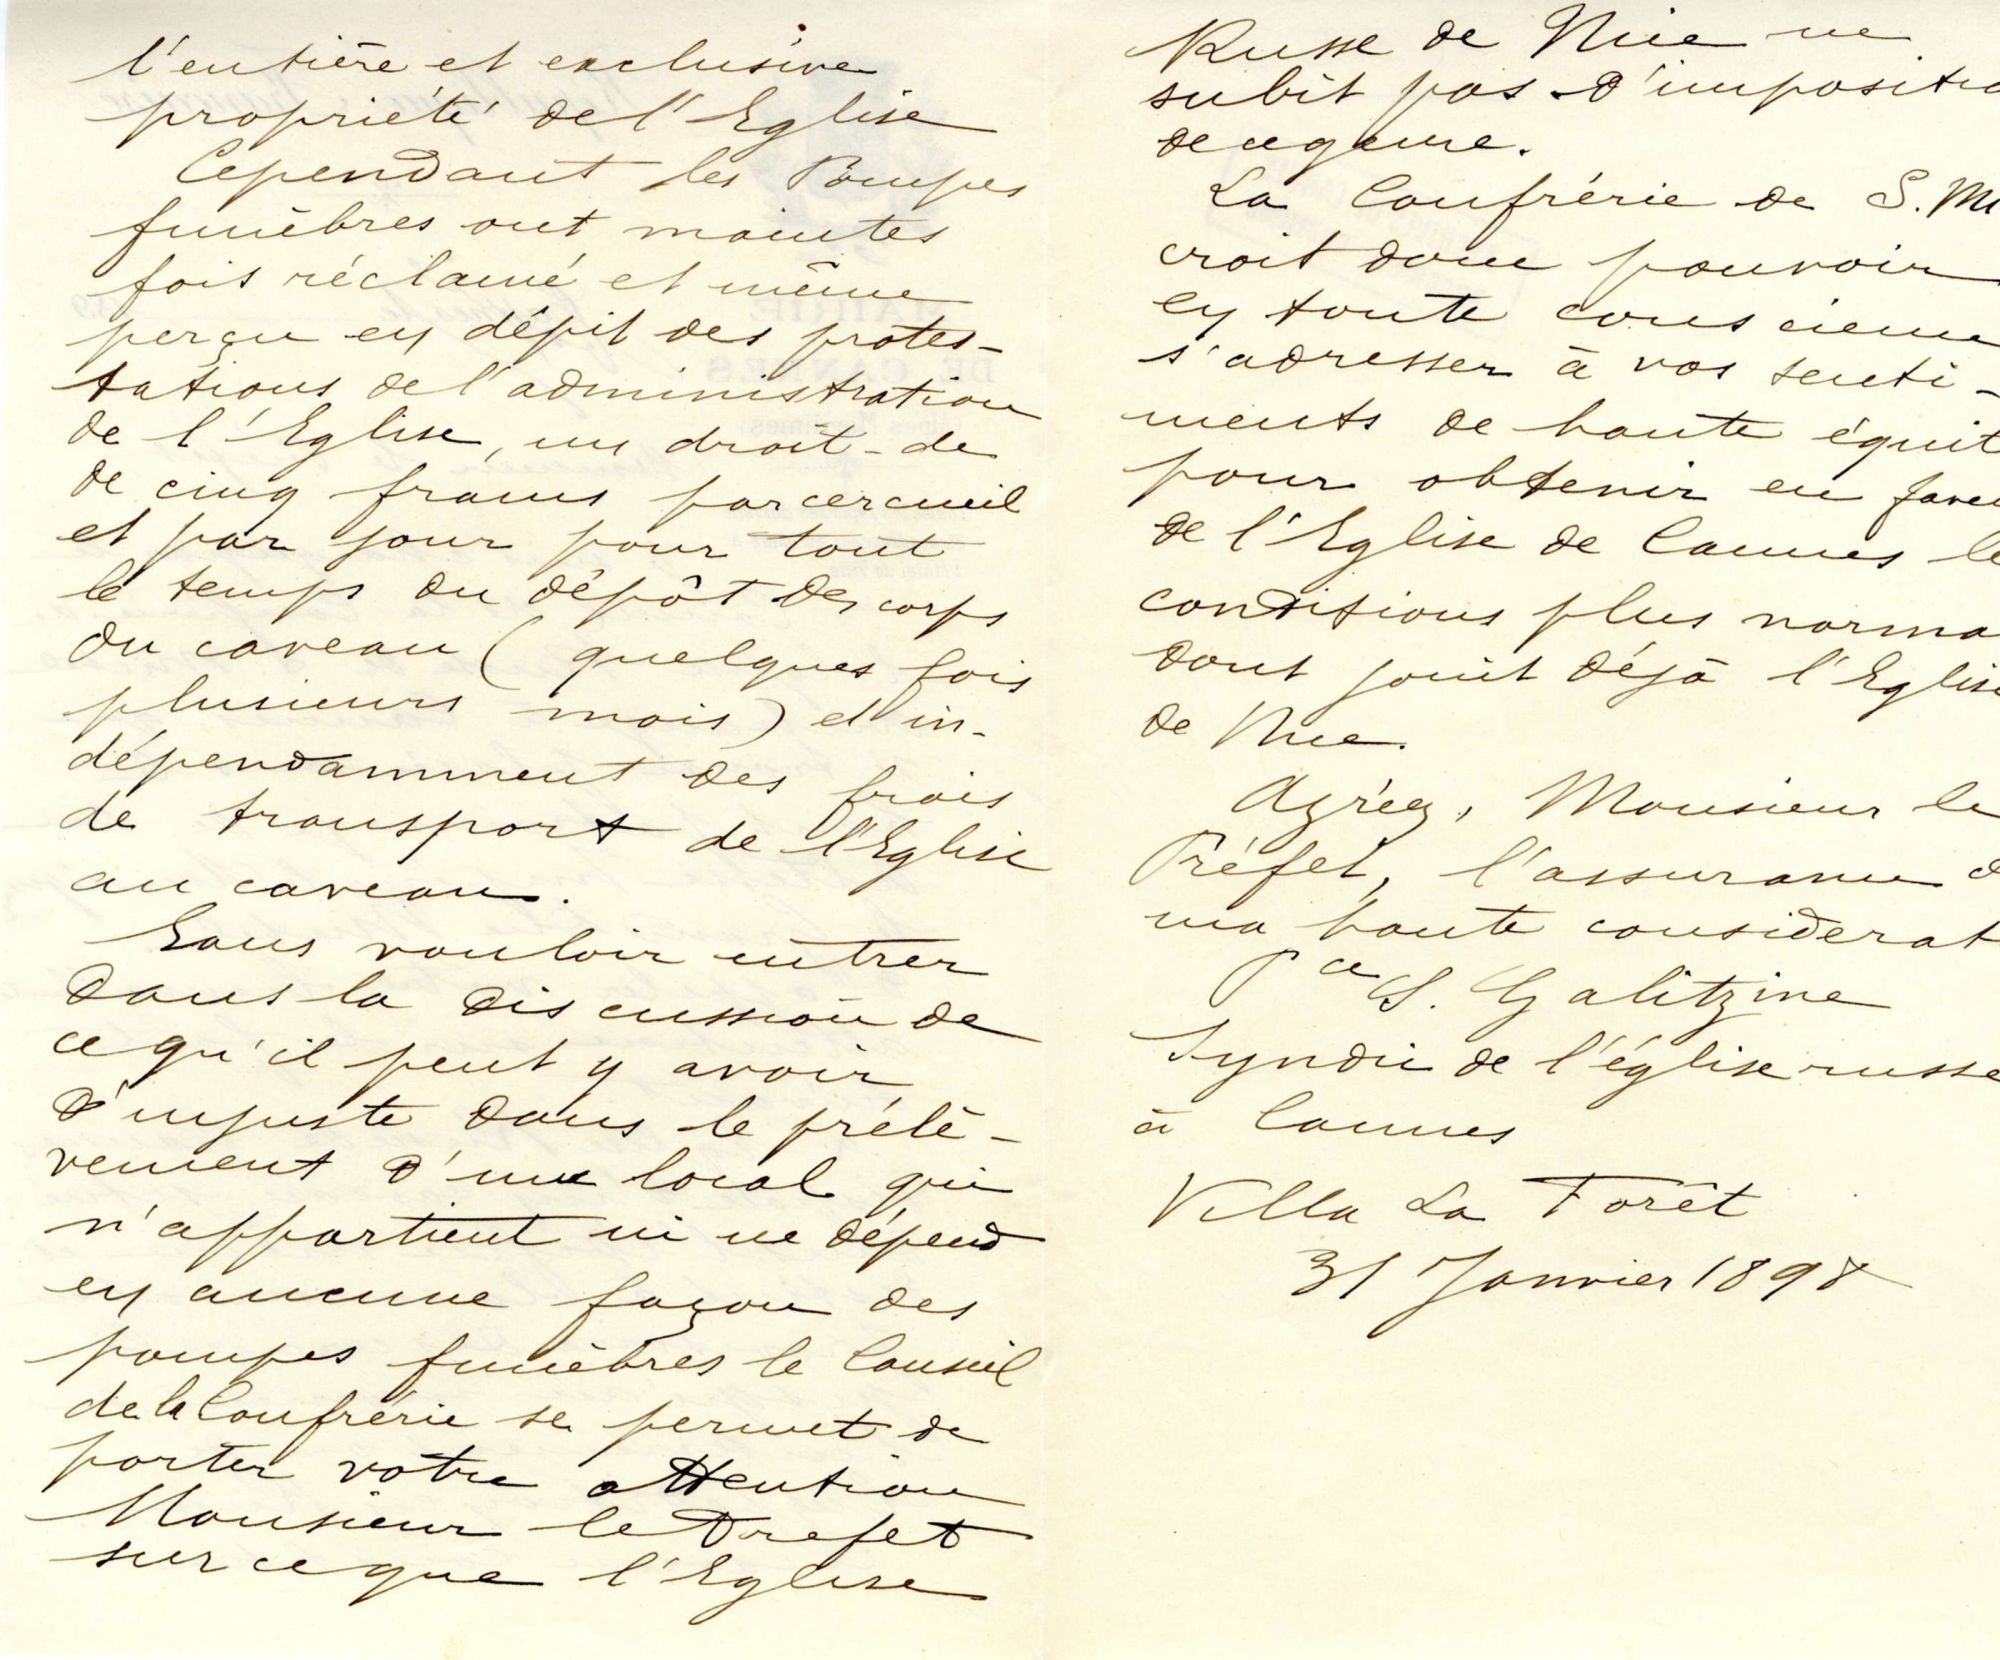 l'entière et exclusive
propriété de l'Eglise
Cependant les Pompes
funèbres ont maintes
fois réclamé et même
perçu en dépit des protes-
tations de l'administration
de l'Eglise, un droit de
de cinq francs par cercueil
et par jour pour tout
le temps du dépôt des corps
du caveau (quelques fois
plusieurs mois) et in-
dépendamment des frais
de transport de l'Eglise
au caveau.
Sans vouloir entrer
dans la discussion de
ce qu'il peut y avoir
d'injuste dans le prélè-
vement d'un local qui
n'appartient ni ne dépend
en aucune façon des
pompes funèbres le Conseil
de la Confrérie se permet de
porter votre attention
Monsieur le Prefet
sur ce que l'Eglise
Russe de Nice ne
subit pas d'impositio
de ce genre.
La Confrérie de S. Mi
croit donc pouvoir
en toute conscience
s'adresser à vos senti-
ments de haute équit
pour obtenir en faveu
de l'Eglise de Cannes le
conditions plus norma
dont jouit déjà l'Eglise
de Nice.
Agréez, Monsieur le
Préfet, l'assurance d
ma haute considerat
Pce S. Galitzine
Syndic de l'église russe
à Cannes
Villa La Forêt
31 Janvier 1898
MAIRIE
DE CANNES